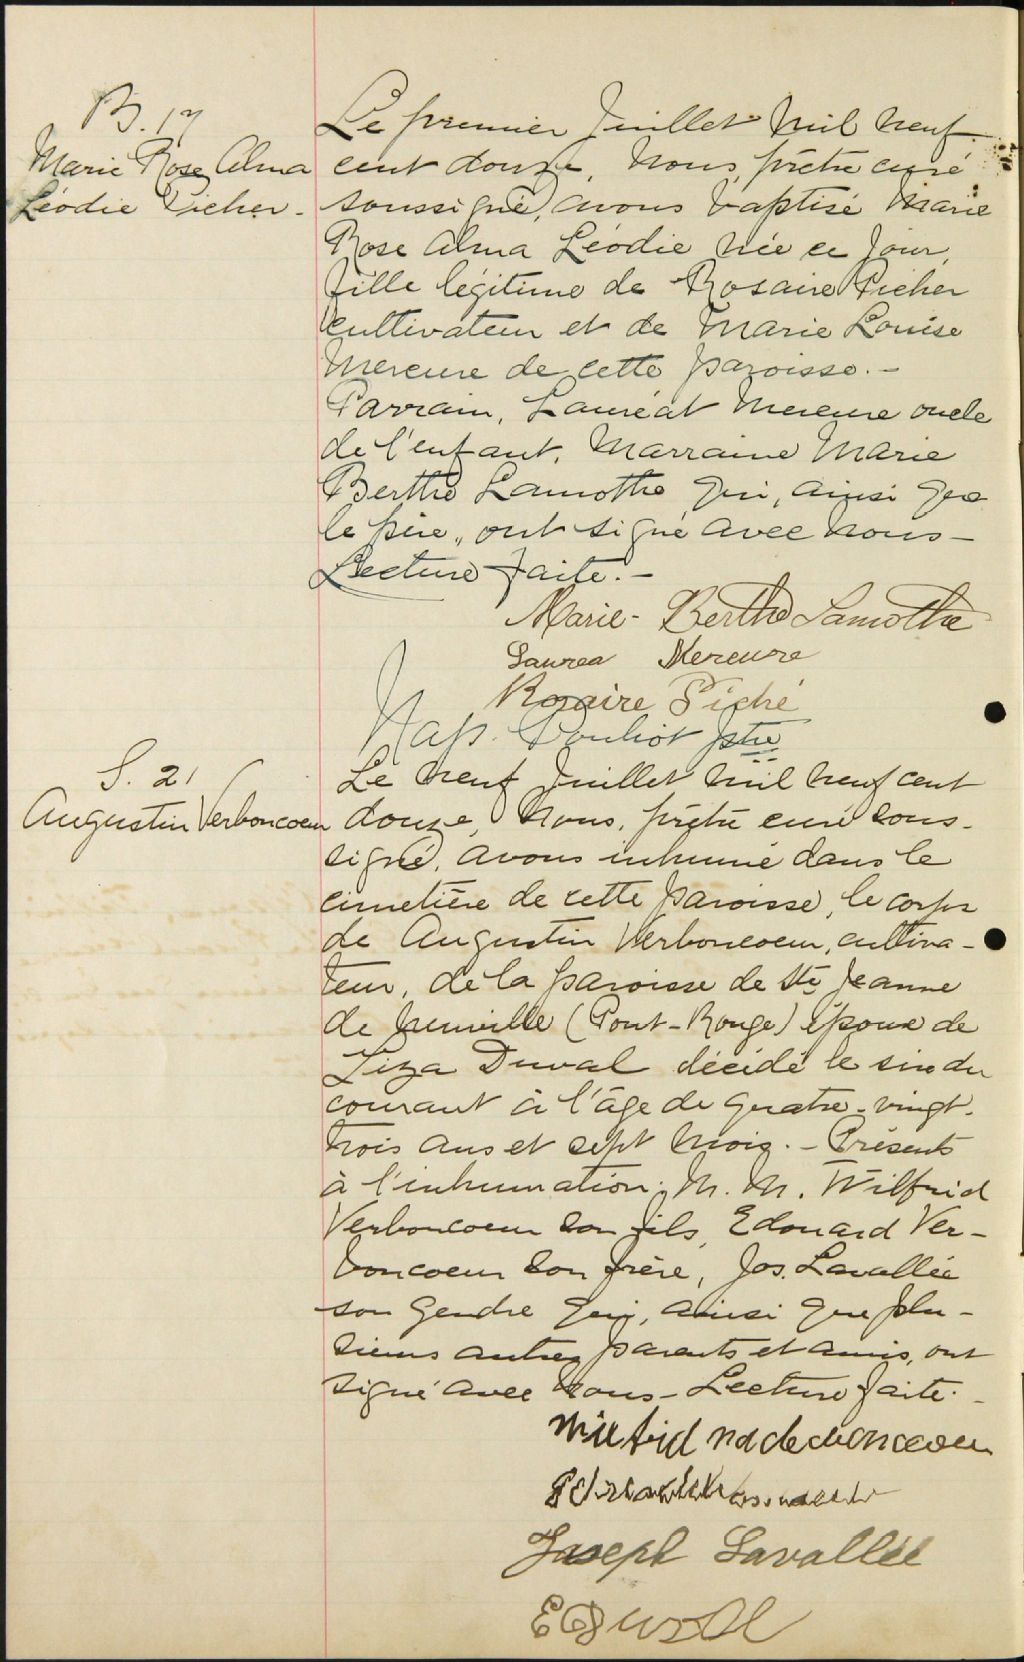 B. 17
Marie Rose Alma
Léodie Picher -
Le premier Juillet mil neuf
cent douze, nous, prêtre curé
soussigné, avons baptisé Marie
Rose Alma Léodie née ce jour,
fille légitime de Rosaire Picher
cultivateur et de Marie Louise
Mercure de cette paroisse. -
Parrain, Lauréat Mercure oncle
de l'enfant. Marraine Marie
Berthe Lamothe qui, ainsi que
le père, ont signé avec nous -
Lecture faite. -
Marie - Berthe Lamothe
Laurea Mercure
Rosaire Piché
Nap. Pouliot ptre
S. 21
Augustin Verboncoeur
Le neuf Juillet mil neuf cent
douze, nous, prêtre curé sous-
signé, avons inhumé dans le
cimetière de cette paroisse, le corps
de Augustin Verboncoeur, cultiva-
teur, de la paroisse de Ste Jeanne
de Neuville (Pont-Rouge) époux de
Liza Duval décédé le six du
courant à l'âge de quatre-vingt-
trois ans et sept mois. - Présents
à l'inhumation: M. M. Wilfrid
Verboncoeur son fils, Edouard Ver-
boncoeur son frère, Jos. Lavallée
son gendre qui, ainsi que plu-
sieurs autres parents et amis, ont
signé avec nous - Lecture faite. -
Joseph Lavallée
E Duval